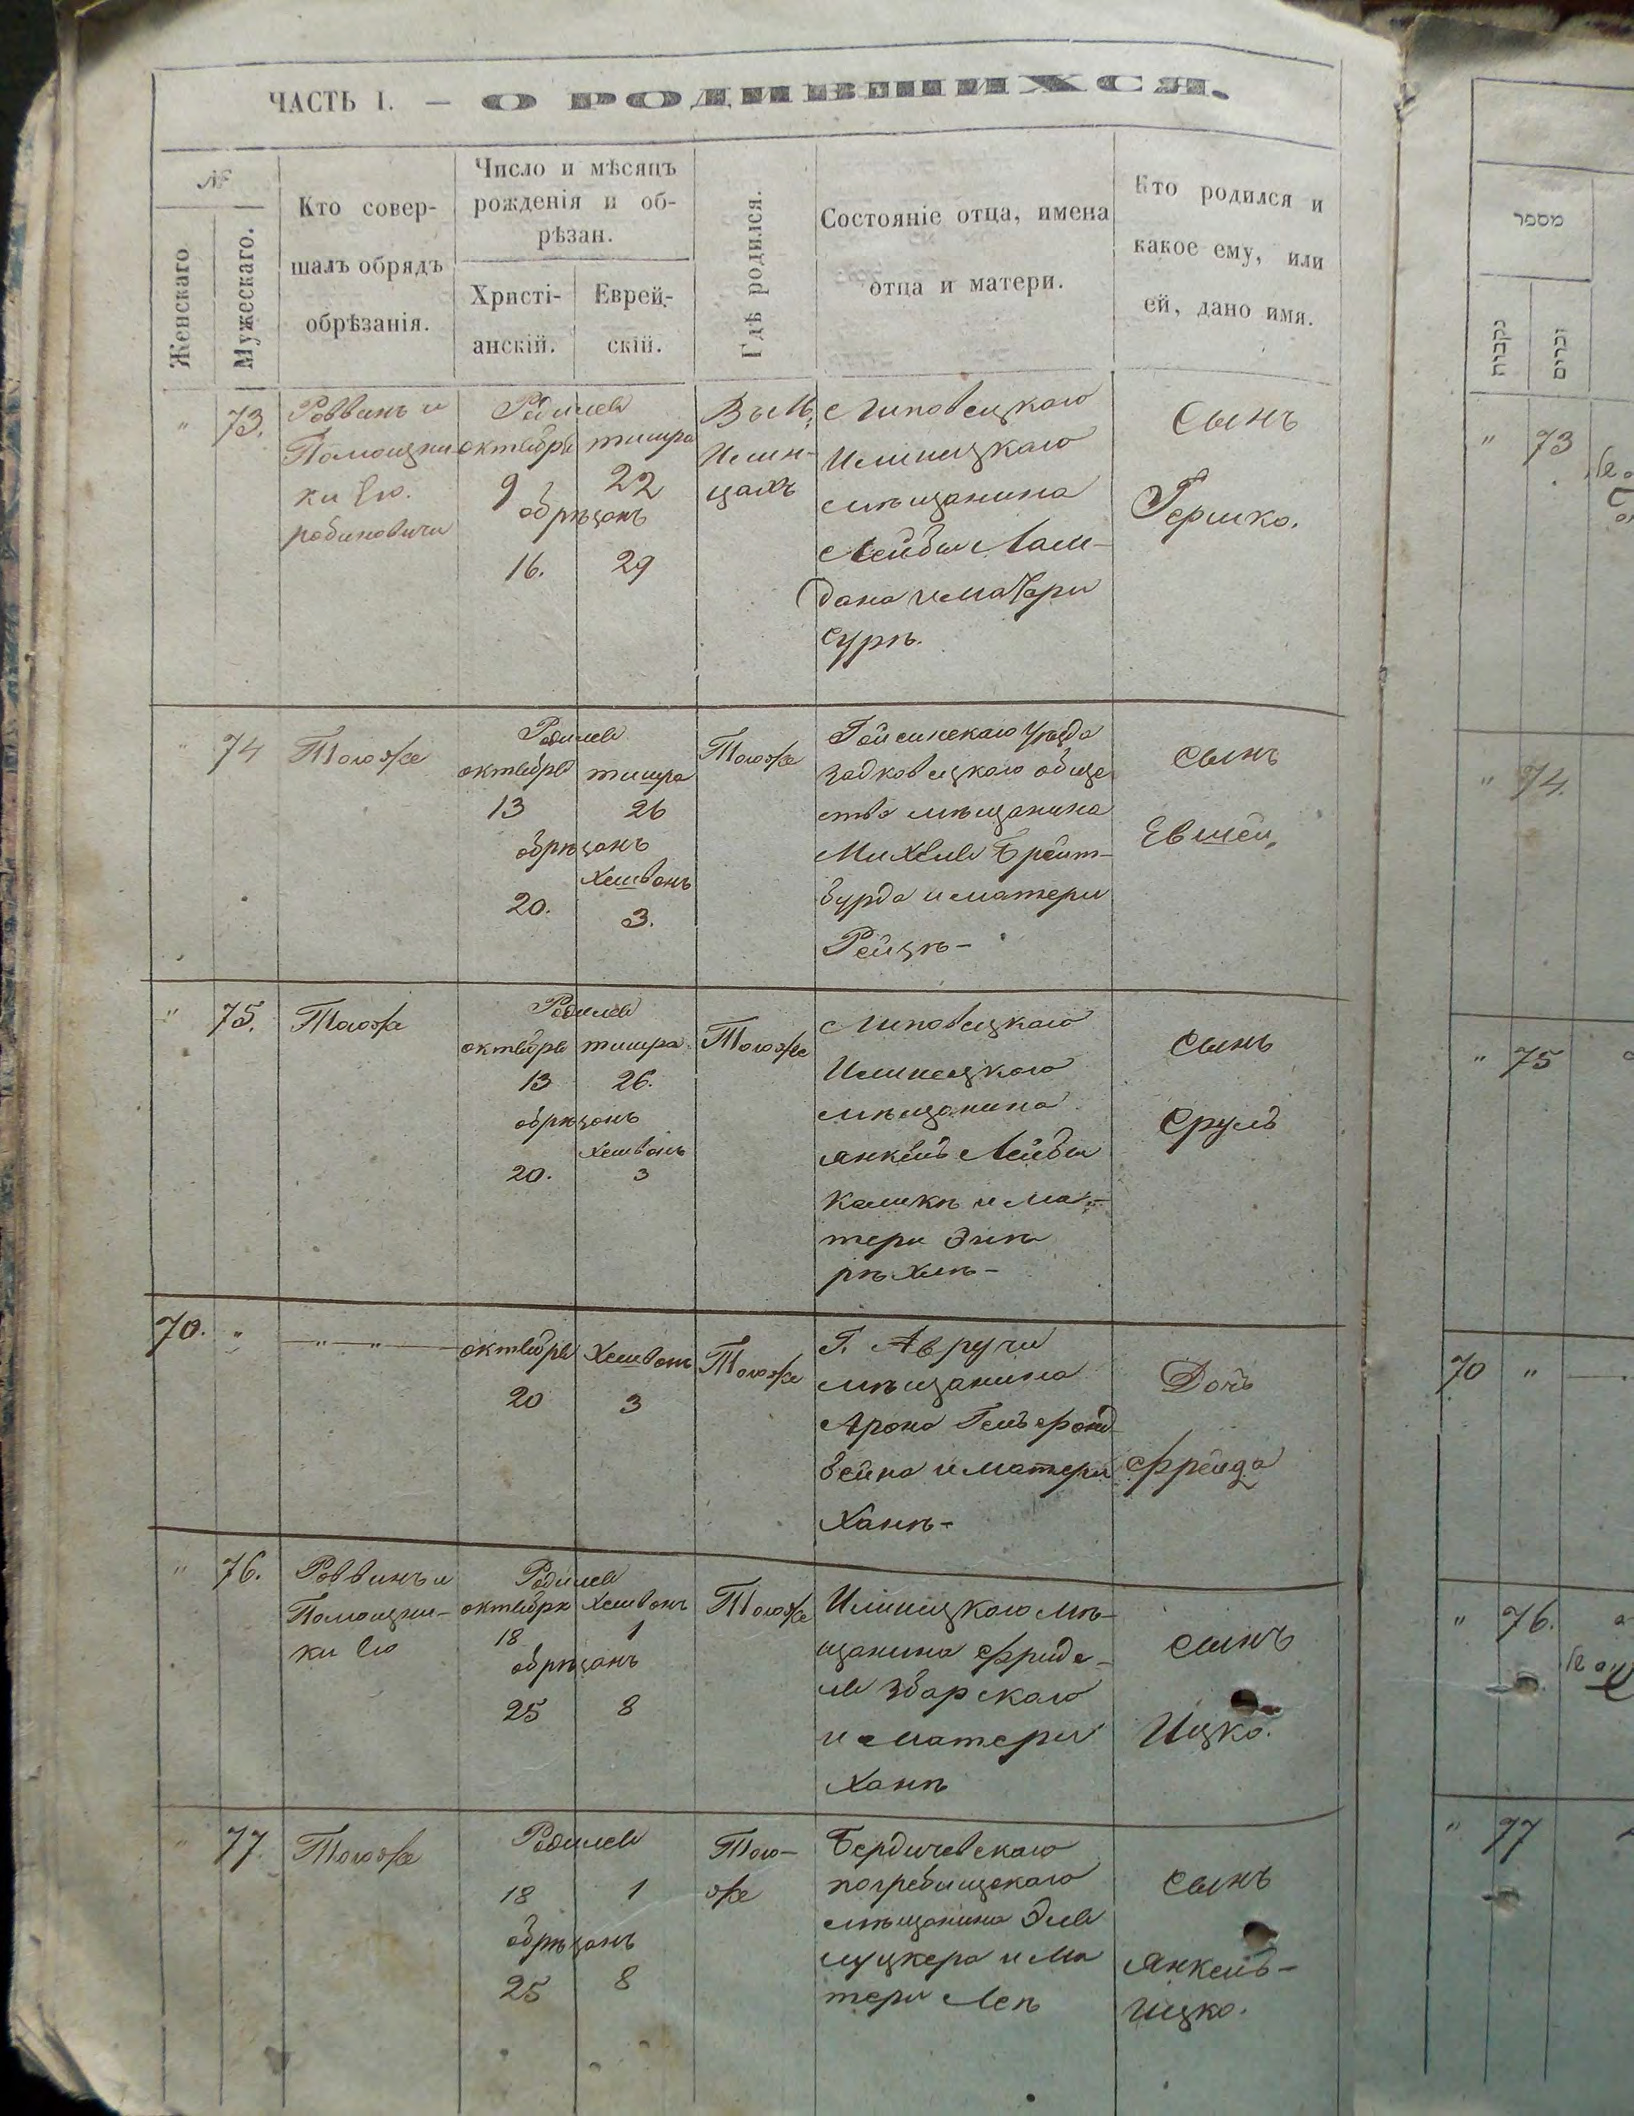 ЧАСТЬ I. — О РОДИВШИХСЯ.
№
Женскаго
Мужескаго.
Кто совер-
шалъ обрядъ
обрѣзанія.
Число и мѣсяцъ
рожденія и об-
рѣзан.
Христі-
анскій.
Еврей-
скій.
Гдѣ родился.
Состояніе отца, имена
отца и матери.
Кто родился и
какое ему, или
ей, дано имя.
" 73.
Раввинъ и
Помощни
ки Его.
рабиновичи
Родился
октября тишра
9 22
обрѣзанъ
16. 29
Въ М.
Илин-
цахъ
Липовецкаго
Илинецкаго
мѣщанина
Лейбы
дана и матери
Суры.
Сынъ
Гершко.
" 74
Тогоже
Родился
октября тишра
13 26
обрѣзанъ
Хешванъ
20. 3.
Тогоже
Гайсинскаго Уѣзда
общес
тва мѣщанина
Михеля Брейт-
бурда и матери
Рейзѣ-
Сынъ
Евшей.
" 75.
Тогоже
Родился
октября тишра
13 26.
обрѣзанъ
Хешванъ
20. 3
Тогоже
Липовецкаго
Илинецкаго
мѣщанина
Янкель Лейбы
и ма-
тери Эти
рѣхлѣ-
Сынъ
Сруль
70. "
— " — " —
октября Хешванъ
20 3
Тогоже
Г. Авручи
мѣщанина
Арона Гельфонд
бейна и матери
Ханѣ-
Дочь
Фрейда
" 76.
Раввинъ и
Помощни-
ки Его
Родился
октября Хешванъ
18 1
обрѣзанъ
25 8
Тогоже
Илинецкаго мѣ-
щанина Фриде-
ля Збарскаго
и матери
Ханѣ
Сынъ
Ицко.
" 77
Тогоже
Родился
18 1
обрѣзанъ
25 8
Того-
же
Бердичевскаго
погребищскаго
мѣщанина Эля
Луцкера и Ма
тери Леѣ
Сынъ
Янкель-
Ицко.
מספר
נקבות
זכרים
" 73
" 74.
" 75
70 "
" 76.
" 77